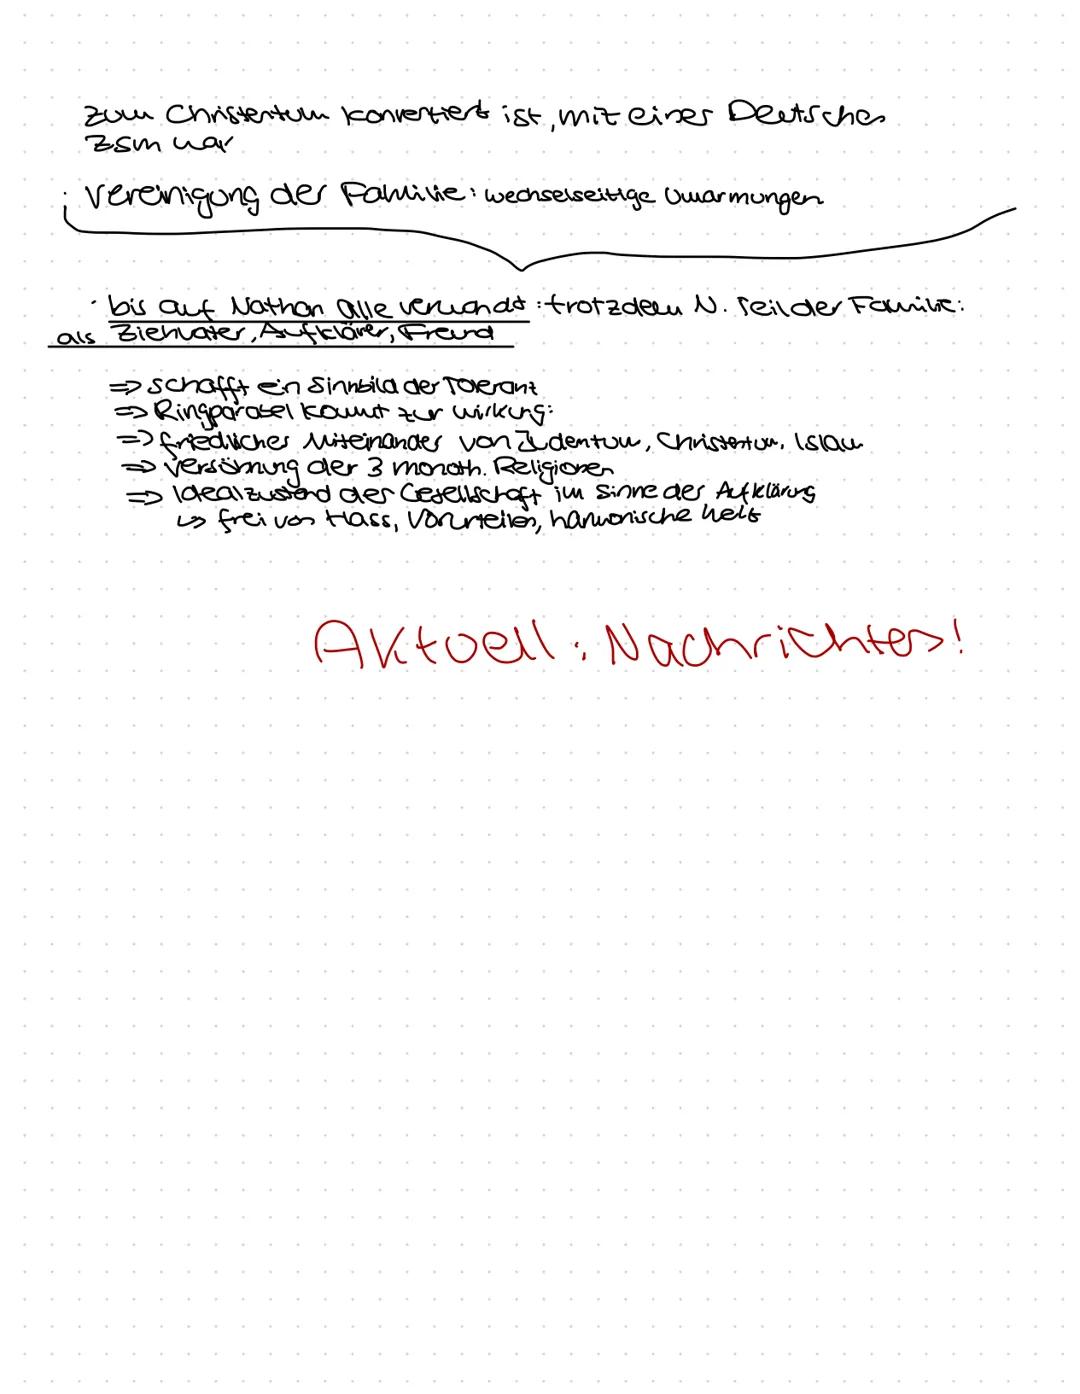 zum Christentum konvertiert ist, mit einer Deutschen
zsm war
· Vereinigung der Familie: wechselseitige Umarmungen
· bis auf Nathan alle verwandt: trotzdem N. Teil der Familie:
als Ziehvater, Aufklärer, Freund
⇒ schafft ein Sinnbild der Toleranz
⇒ Ringparabel kommt zur Wirkung:
⇒ friedliches Miteinander von Judentum, Christentum, Islam
⇒ Versöhnung der 3 monoth. Religionen
⇒ Idealzustand der Gesellschaft im Sinne der Aufklärung
↳ frei von Hass, Vorurteilen, harmonische Welt
Aktuell: Nachrichten!